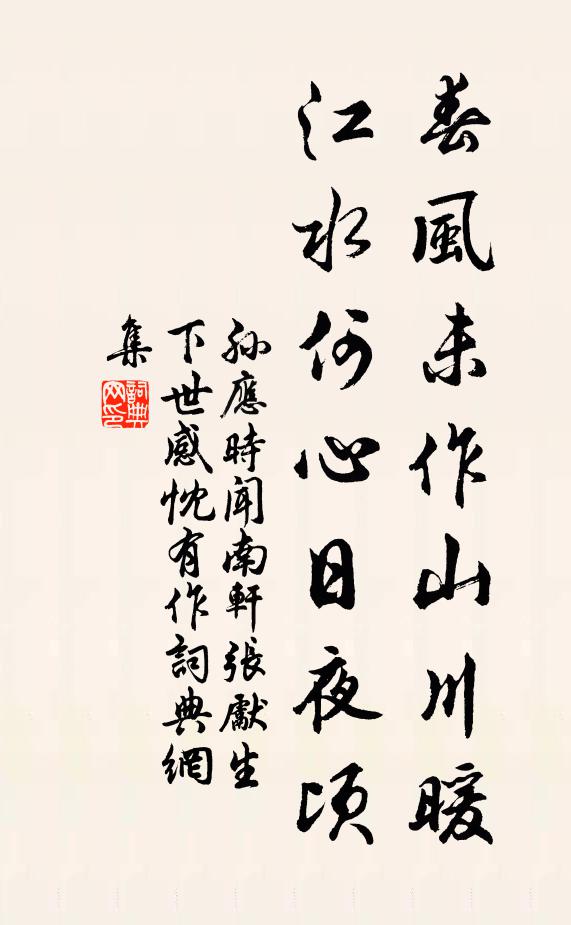 春風未作山川暖
江水何心日夜頃
孫應時聞南軒張獻生
下世感忱有作詞典網
集
詞典
网印